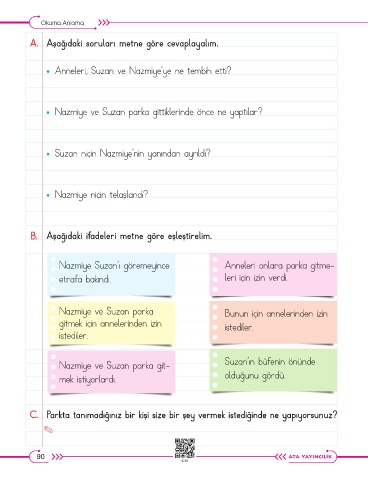 Okuma Anlama
A. Aşağıdaki soruları metne göre cevaplayalım.
• Anneleri, Suzan ve Nazmiye'ye ne tembih etti?
• Nazmiye ve Suzan parka gittiklerinde önce ne yaptılar?
• Suzan niçin Nazmiye'nin yanından ayrıldı?
• Nazmiye niçin telaşlandı?
B. Aşağıdaki ifadeleri metne göre eşleştirelim.
Nazmiye Suzan'ı göremeyince
etrafa bakındı.
Anneleri onlara parka gitme-
leri için izin verdi.
Nazmiye ve Suzan parka
gitmek için annelerinden izin
istediler.
Bunun için annelerinden izin
istediler.
Nazmiye ve Suzan parka git-
mek istiyorlardı.
Suzan'ın büfenin önünde
olduğunu gördü.
C. Parkta tanımadığınız bir kişi size bir şey vermek istediğinde ne yapıyorsunuz?
90
ATA YAYINCILIK